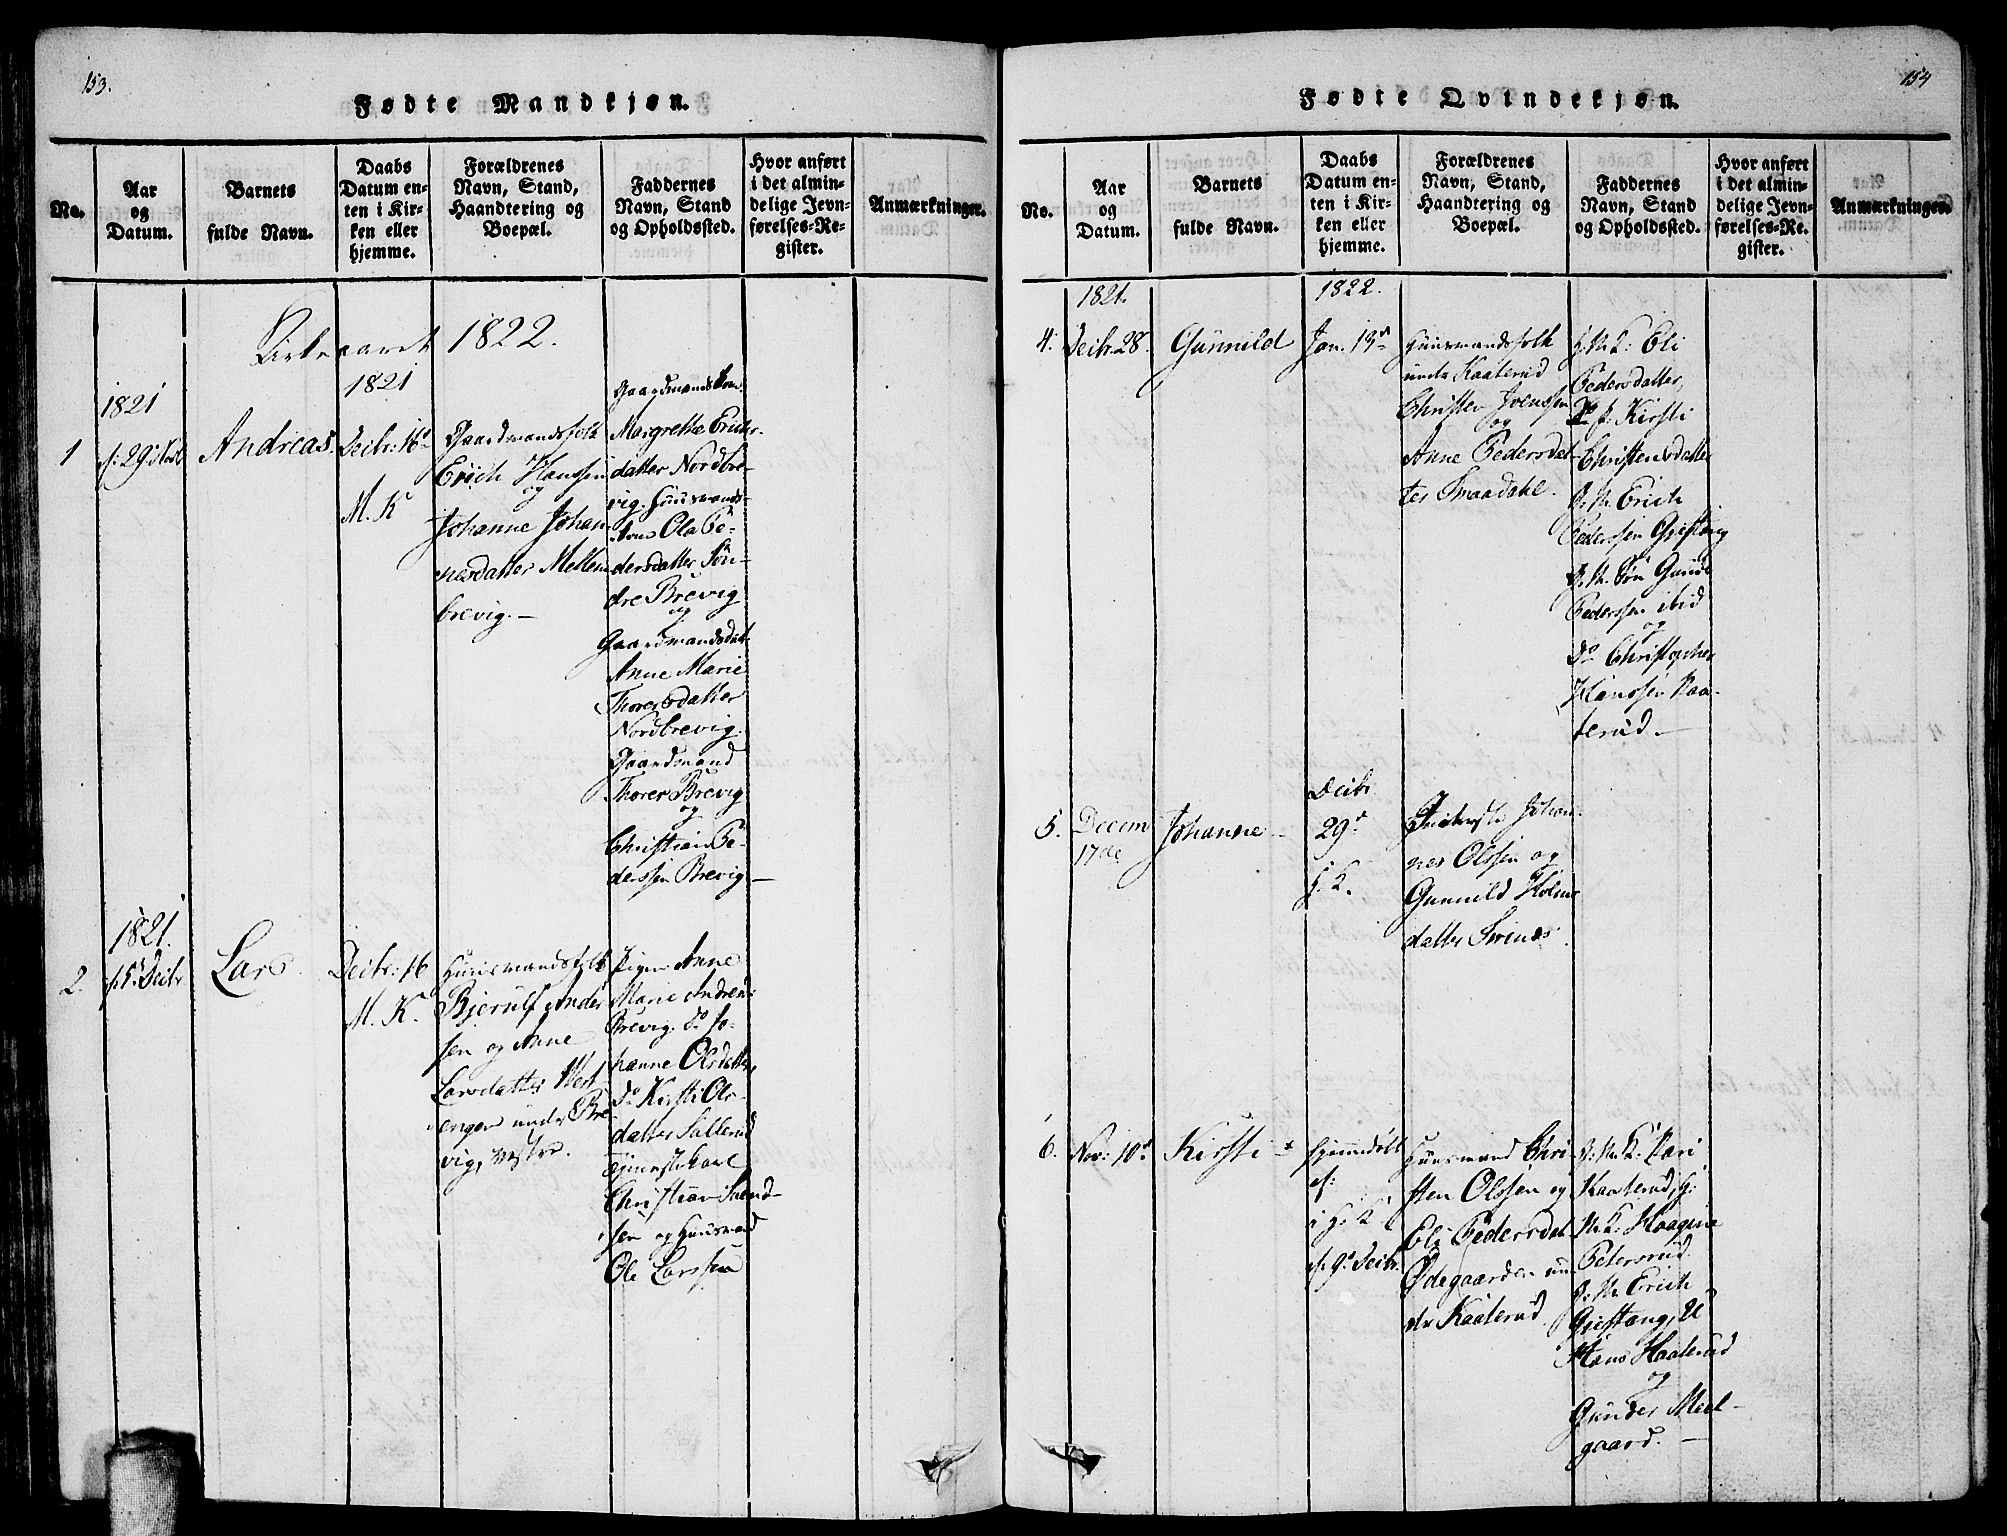 153.
Fødte Mandkjøn.
No.
Aar
og
Datum.
Barnets
fulde Navn.
Daabs
Datum en-
ten i Kir-
ken eller
hjemme.
Forældrenes
Navn, Stand,
Haandtering og
Boepæl.
Faddernes
Navn, Stand
og Opholdssted.
Hvor anført
i det almin-
delige Jevn-
førelses-Re-
gister.
Anmærkninger.
Kirkeaaret 1822.
1
1821
29
Andreas.
1821
Decbr: 16
M. K
Gaardmandsfolk
Erich Hanssen
og
Johanne Johan-
nesdatter Mellem
brevig. —
Gaardmandskone
Margrethe Erichs-
datter Nordbre-
vig. Huusmands-
kone Ola Pe-
dersdatter Søn-
dre Brevig
og
Gaardmandsdatt
Anne Marie
Thoresdatter
Nordbrevig.
Gaardmand
Thorer Brevig
og
Christian Pe-
derssen Brevig —
2.
1821.
5 Decbr
Lars.
Decbr: 16
M. K.
Huusmandsfolk
Bjerulf Ander
sen og Anne
Larsdatter Vest-
engen under Bre
vig, vestre.
Pigen Anne
Marie Andrend:
Brevig. Do Jo-
hanne Olsdatter,
Do Kirsti Ols-
datter Sallerud
Tjenestekarl
Christian Svend-
sen og Huusmand
Ole Larssen
154
Fødte Qvindekjøn.
No.
Aar
og
Datum.
Barnets
fulde Navn.
Daabs
Datum en-
ten i Kir-
ken eller
hjemme.
Forældrenes
Navn, Stand,
Haandtering og
Boepæl.
Faddernes
Navn, Stand
og Opholdssted.
Hvor anført
i det almin-
delige Jevn-
førelses-Re-
gister.
Anmærkninger.
4.
1821.
Decbr. 28.
Gunnild
1822.
Jan. 13
Huusmandsfolk
under Kaaterud
Christen Svenssen
og
Anne Pedersdat-
ter Smaadahl.
Eli
Pedersdatter,
Kirsti
Christensdatter
Erich
Pederssen Gjestang
Gunder
Pederssen ibid
og
Do Christopher
Hanssen Kaa-
terud. —
5.
Decem
17de
Johanne —
Decbr
29
H. K.
Inderste Johan-
nes Olssen og
Gunnild Holms
datter Svenæs.
6.
Nov: 10
Kirsti —
Hjemmedøbt
i H. K
9 Decbr.
Huusmand Chri-
sten Olssen og
Eli Pedersdat
Ødegaarden un-
der Kaaterud.
Kari
Kaaterud, G.
M. K. Haagine
Petersrud.
Erich
Gjestang, U
Hans Kaaterud
og
Gunder Meel-
gaard. —